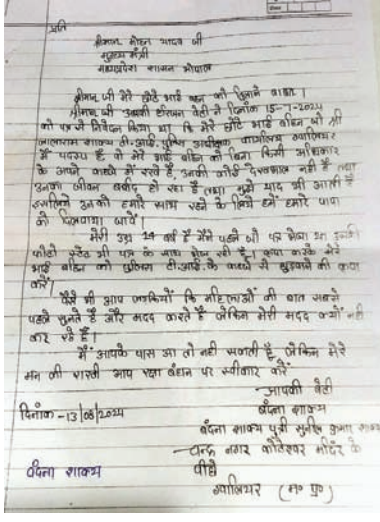 प्रति
श्रीमान मोहन यादव जी
मुख्य मंत्री
मध्यप्रदेश शासन भोपाल
श्रीमान जी मेरे छोटे भाई बहन को दिलाने बाबत।
श्रीमान जी आपकी बेटी ने दिनांक 15-7-2024
को पत्र से निवेदन किया था कि मेरे छोटे भाई बहिन जो श्री
बालाराम शाक्य टी.आई. पुलिस अधीक्षक कार्यालय ग्वालियर
में पदस्थ हैं वो मेरे भाई बहिन को बिना किसी अधिकार
के अपने कब्जे में रखे हैं, उनकी कोई देखभाल नहीं है तथा
उनका जीवन बर्बाद हो रहा है तथा मुझे याद भी आती है
इसलिये उनको हमारे साथ रहने के लिये हमें हमारे पापा
को दिलवाया जावे।
मेरी उम्र 14 वर्ष है मैंने पहले जो पत्र भेजा था इसकी
फोटो स्टेट भी पत्र के साथ भेज रही हूँ। कृपा करके मेरे
भाई बहिन को पुलिस टी.आई. के कब्जे से छुड़वाने की कृपा
करें।
वैसे भी आप लड़कियों कि महिलाओं की बात सबसे
पहले सुनते हैं और मदद करते हैं लेकिन मेरी मदद क्यों नहीं
कर रहे हैं।
में आपके पास आ तो नहीं सकती हूँ लेकिन मेरे
मन की राखी आप रक्षा बंधन पर स्वीकार करें
आपकी बेटी
दिनांक -13/08/2024
वंदना शाक्य
वंदना शाक्य पुत्री सुनील कुमार शाक्य
चन्द्र नगर कोटेश्वर मंदिर के
पीछे
वंदना शाक्य
ग्वालियर (म० प्र०)